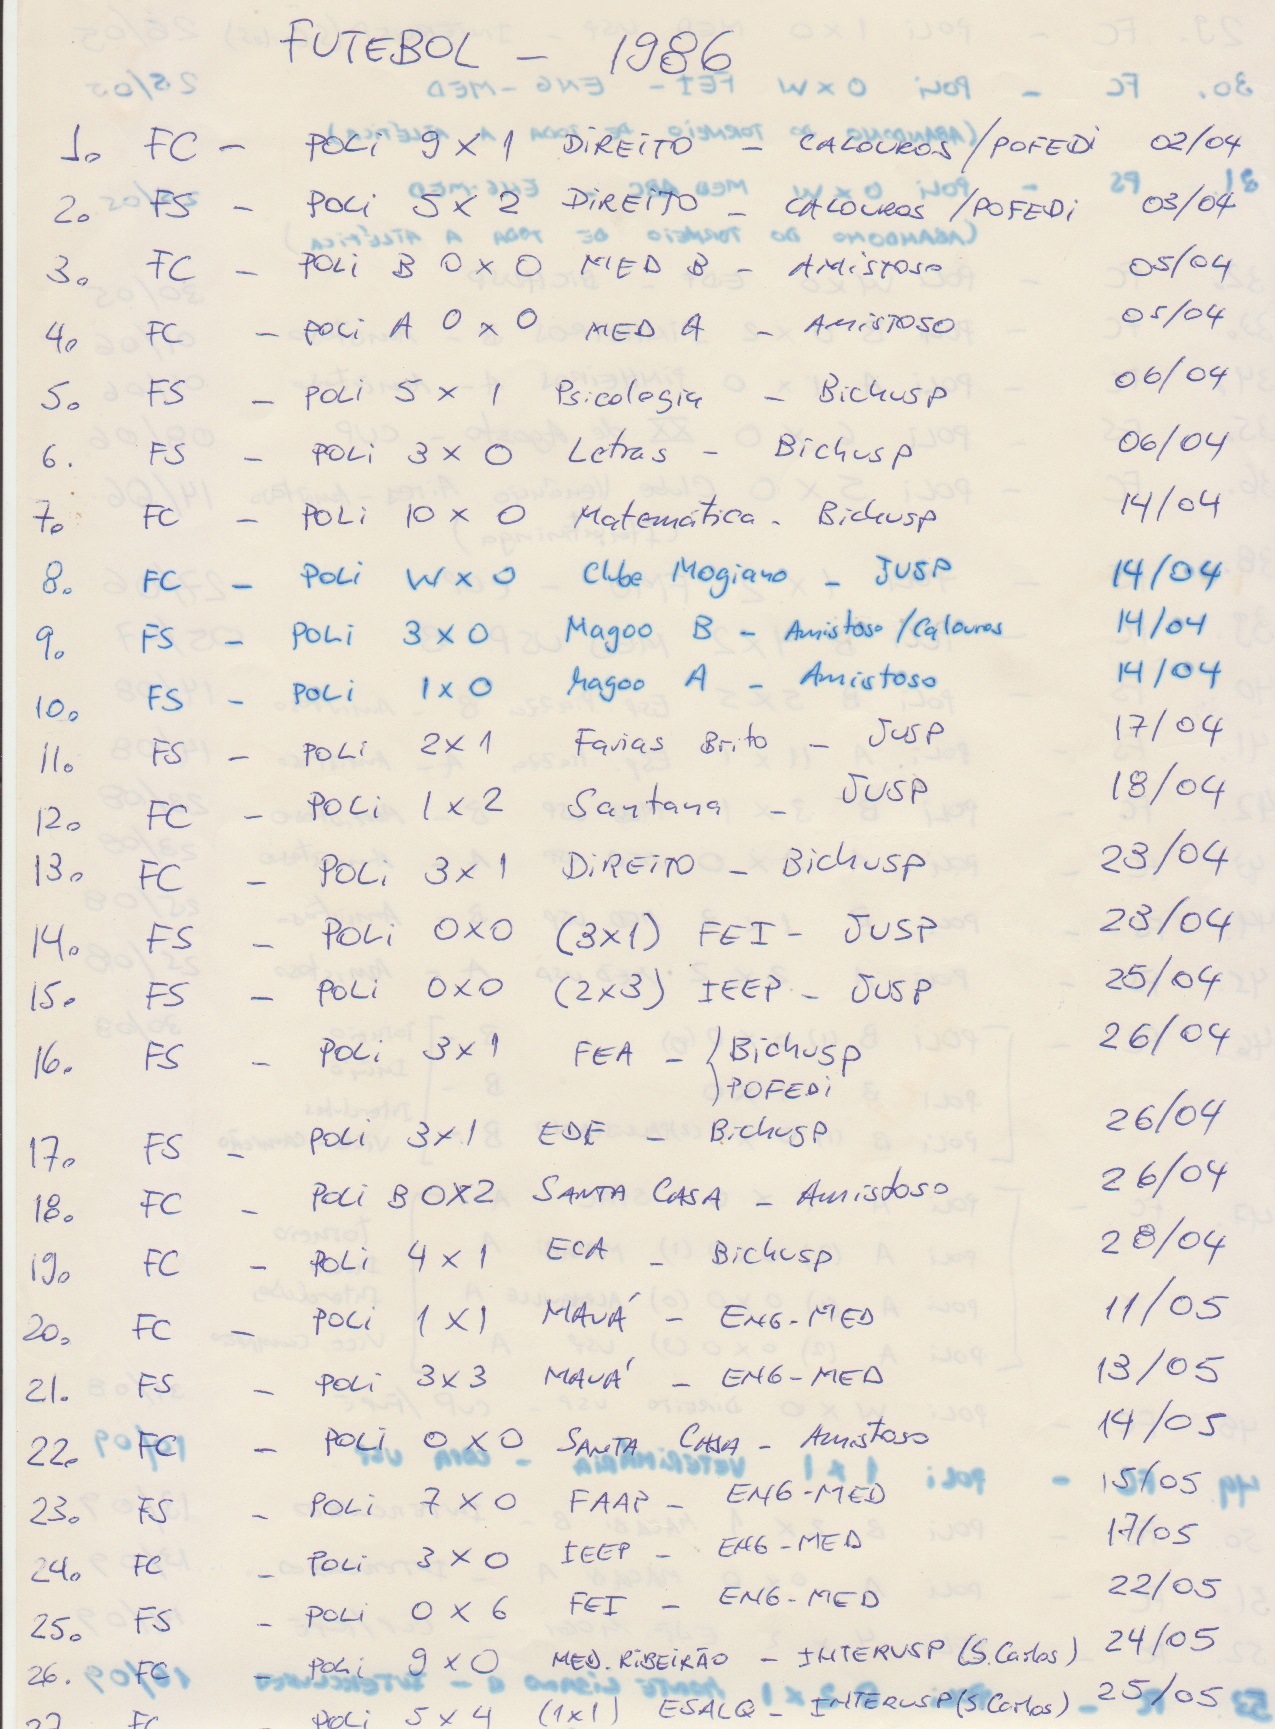 FUTEBOL - 1986
1. FC - POLI 9 X 1 DIREITO - CALOUROS/POFEDI 02/04
2. FS - POLI 5 X 2 DIREITO - CALOUROS/POFEDI 03/04
3. FC - POLI B 0 X 0 MED B - AMISTOSO 05/04
4. FC - POLI A 0 X 0 MED A - AMISTOSO 05/04
5. FS - POLI 5 X 1 Psicologia - BichUSP 06/04
6. FS - POLI 3 X 0 Letras - BichUSP 06/04
7. FC - POLI 10 X 0 Matemática - BichUSP 14/04
8. FC - POLI W X 0 Clube Mogiano - JUSP 14/04
9. FS - POLI 3 X 0 Magoo B - Amistoso/Calouros 14/04
10. FS - POLI 1 X 0 Magoo A - Amistoso 14/04
11. FS - POLI 2 X 1 Farias Brito - JUSP 17/04
12. FC - POLI 1 X 2 Santana - JUSP 18/04
13. FC - POLI 3 X 1 DIREITO - BichUSP 23/04
14. FS - POLI 0 X 0 (3X1) FEI - JUSP 23/04
15. FS - POLI 0 X 0 (2X3) IEEP - JUSP 25/04
16. FS - POLI 3 X 1 FEA - BichUSP 26/04
POFEDI
17. FS - POLI 3 X 1 EDE - BichUSP 26/04
18. FC - POLI B 0 X 2 SANTA CASA - Amistoso 26/04
19. FC - POLI 4 X 1 ECA - BichUSP 28/04
20. FC - POLI 1 X 1 MAUÁ - ENG-MED 11/05
21. FS - POLI 3 X 3 MAUÁ - ENG-MED 13/05
22. FC - POLI 0 X 0 SANTA CASA - Amistoso 14/05
23. FS - POLI 7 X 0 FAAP - ENG-MED 15/05
24. FC - POLI 3 X 0 IEEP - ENG-MED 17/05
25. FS - POLI 0 X 6 FEI - ENG-MED 22/05
26. FC - POLI 9 X 0 MED. RIBEIRÃO - INTERUSP (S. Carlos) 24/05
27. FC - POLI 5 X 4 (1X1) ESALQ - INTERUSP (S. Carlos) 25/05